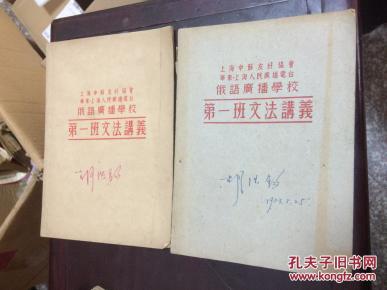 上海中蘇友好協會
華東·上海人民廣播電台
俄語廣播學校
第一班文法講義
上海中蘇友好協會
華東·上海人民廣播電台
俄語廣播學校
第一班文法講義